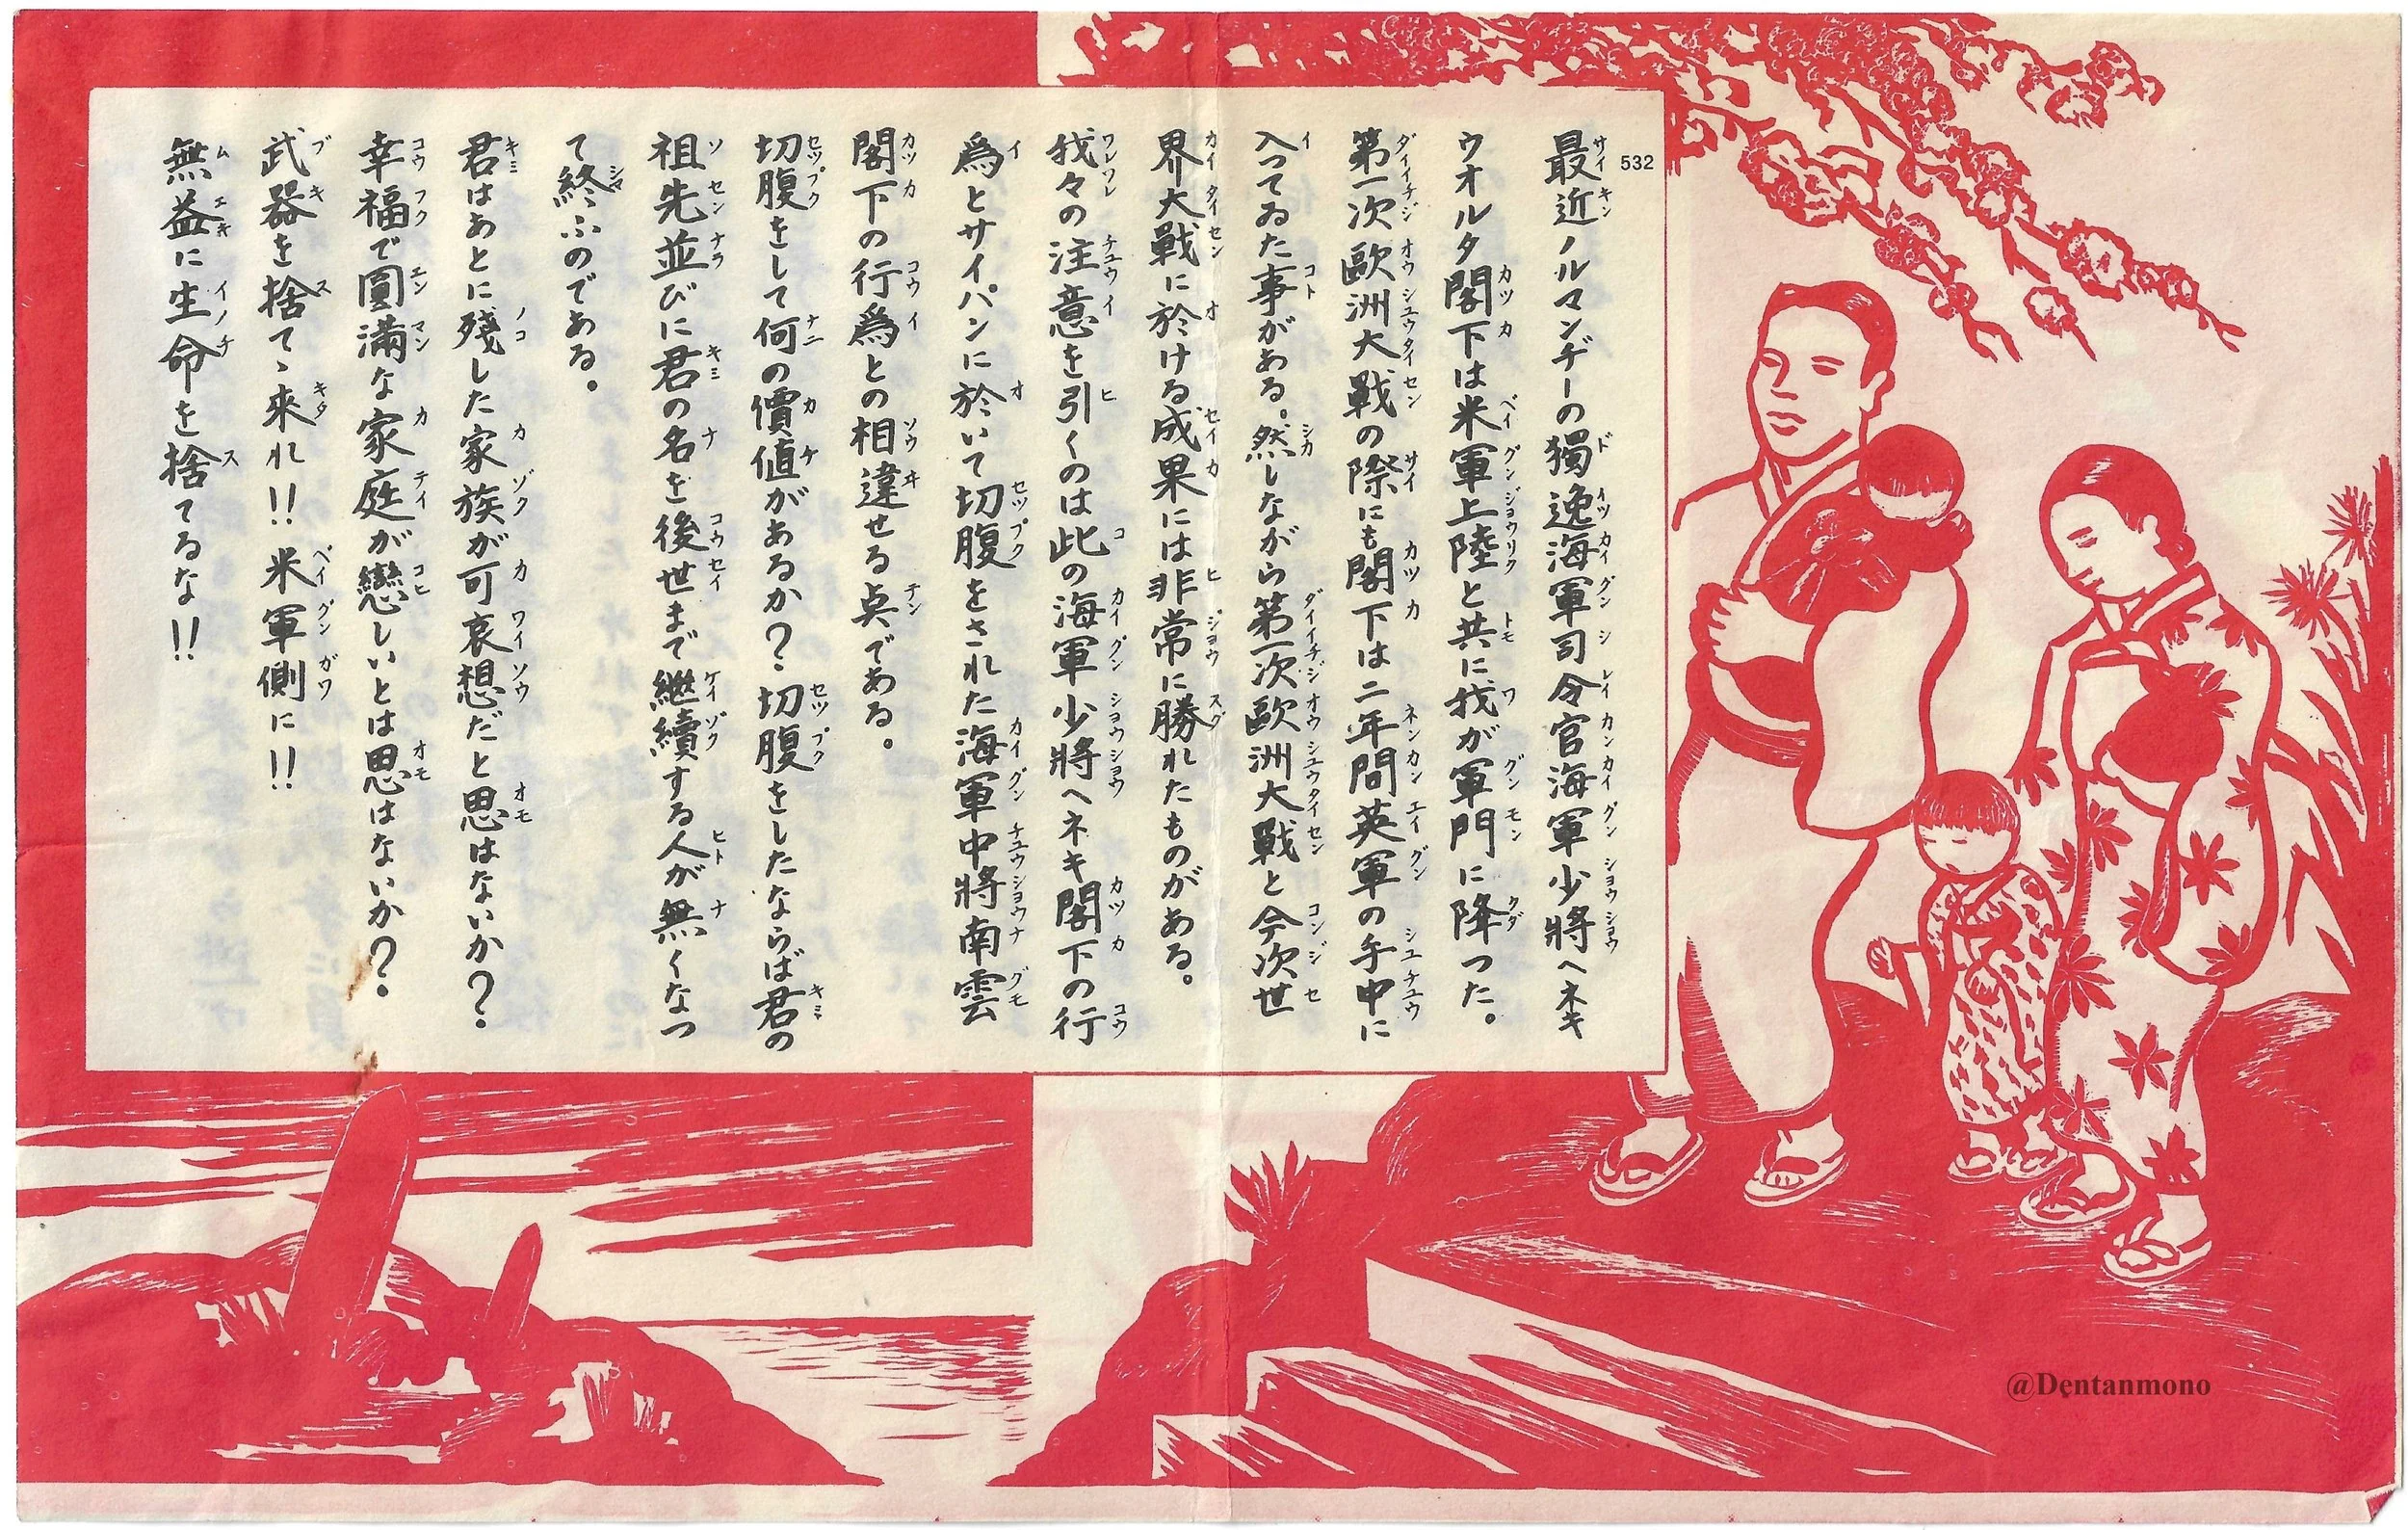 532
最近ノルマンヂーの獨逸海軍司令官海軍少將ヘネキ
ウオルタ閣下は米軍上陸と共に我が軍門に降つた。
第一次歐洲大戰の際にも閣下は二年間英軍の手中に
入つてゐた事がある。然しながら第一次歐洲大戰と今次世
界大戰に於ける成果には非常に勝れたものがある。
我々の注意を引くのは此の海軍少將ヘネキ閣下の行
爲とサイパンに於いて切腹をされた海軍中將南雲
閣下の行爲との相違せる点である。
切腹をして何の價値があるか？切腹をしたならば君の
祖先並びに君の名を後世まで継續する人が無くなつ
て終ふのである。
君はあとに殘した家族が可哀想だと思はないか？
幸福で圓滿な家庭が戀しいとは思はないか？
武器を捨てゝ来れ!!米軍側に!!
無益に生命を捨てるな!!
@Dentanmono